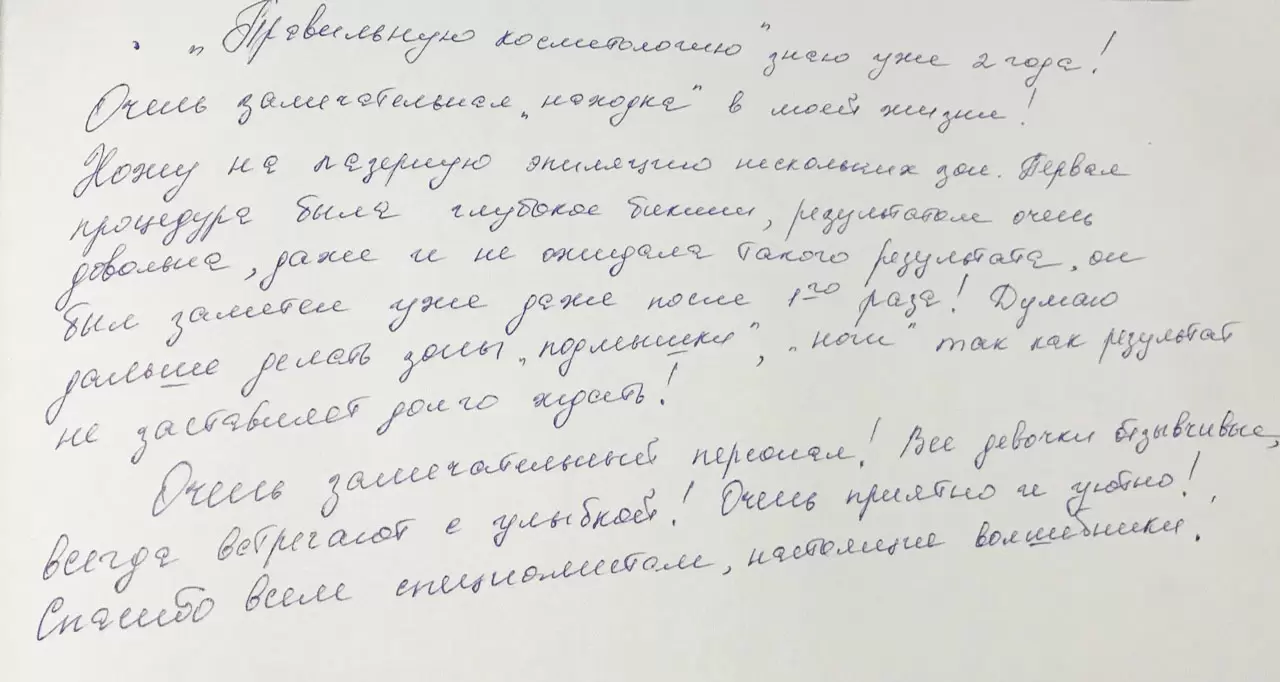 „Правильную косметологию" знаю уже 2 года!
Очень замечательная „находка" в моей жизни!
Хожу на лазерную эпиляцию нескольких зон. Первая
процедура была глубокое бикини, результатом очень
довольна, даже и не ожидала такого результата, он
был заметен уже даже после 1го раза! Думаю
дальше делать зоны „подмышки", „ноги" так как результат
не заставляет долго ждать!
Очень замечательный персонал! Все девочки отзывчивые,
всегда встречают с улыбкой! Очень приятно и уютно!
Спасибо всем специалистам, настоящие волшебники!